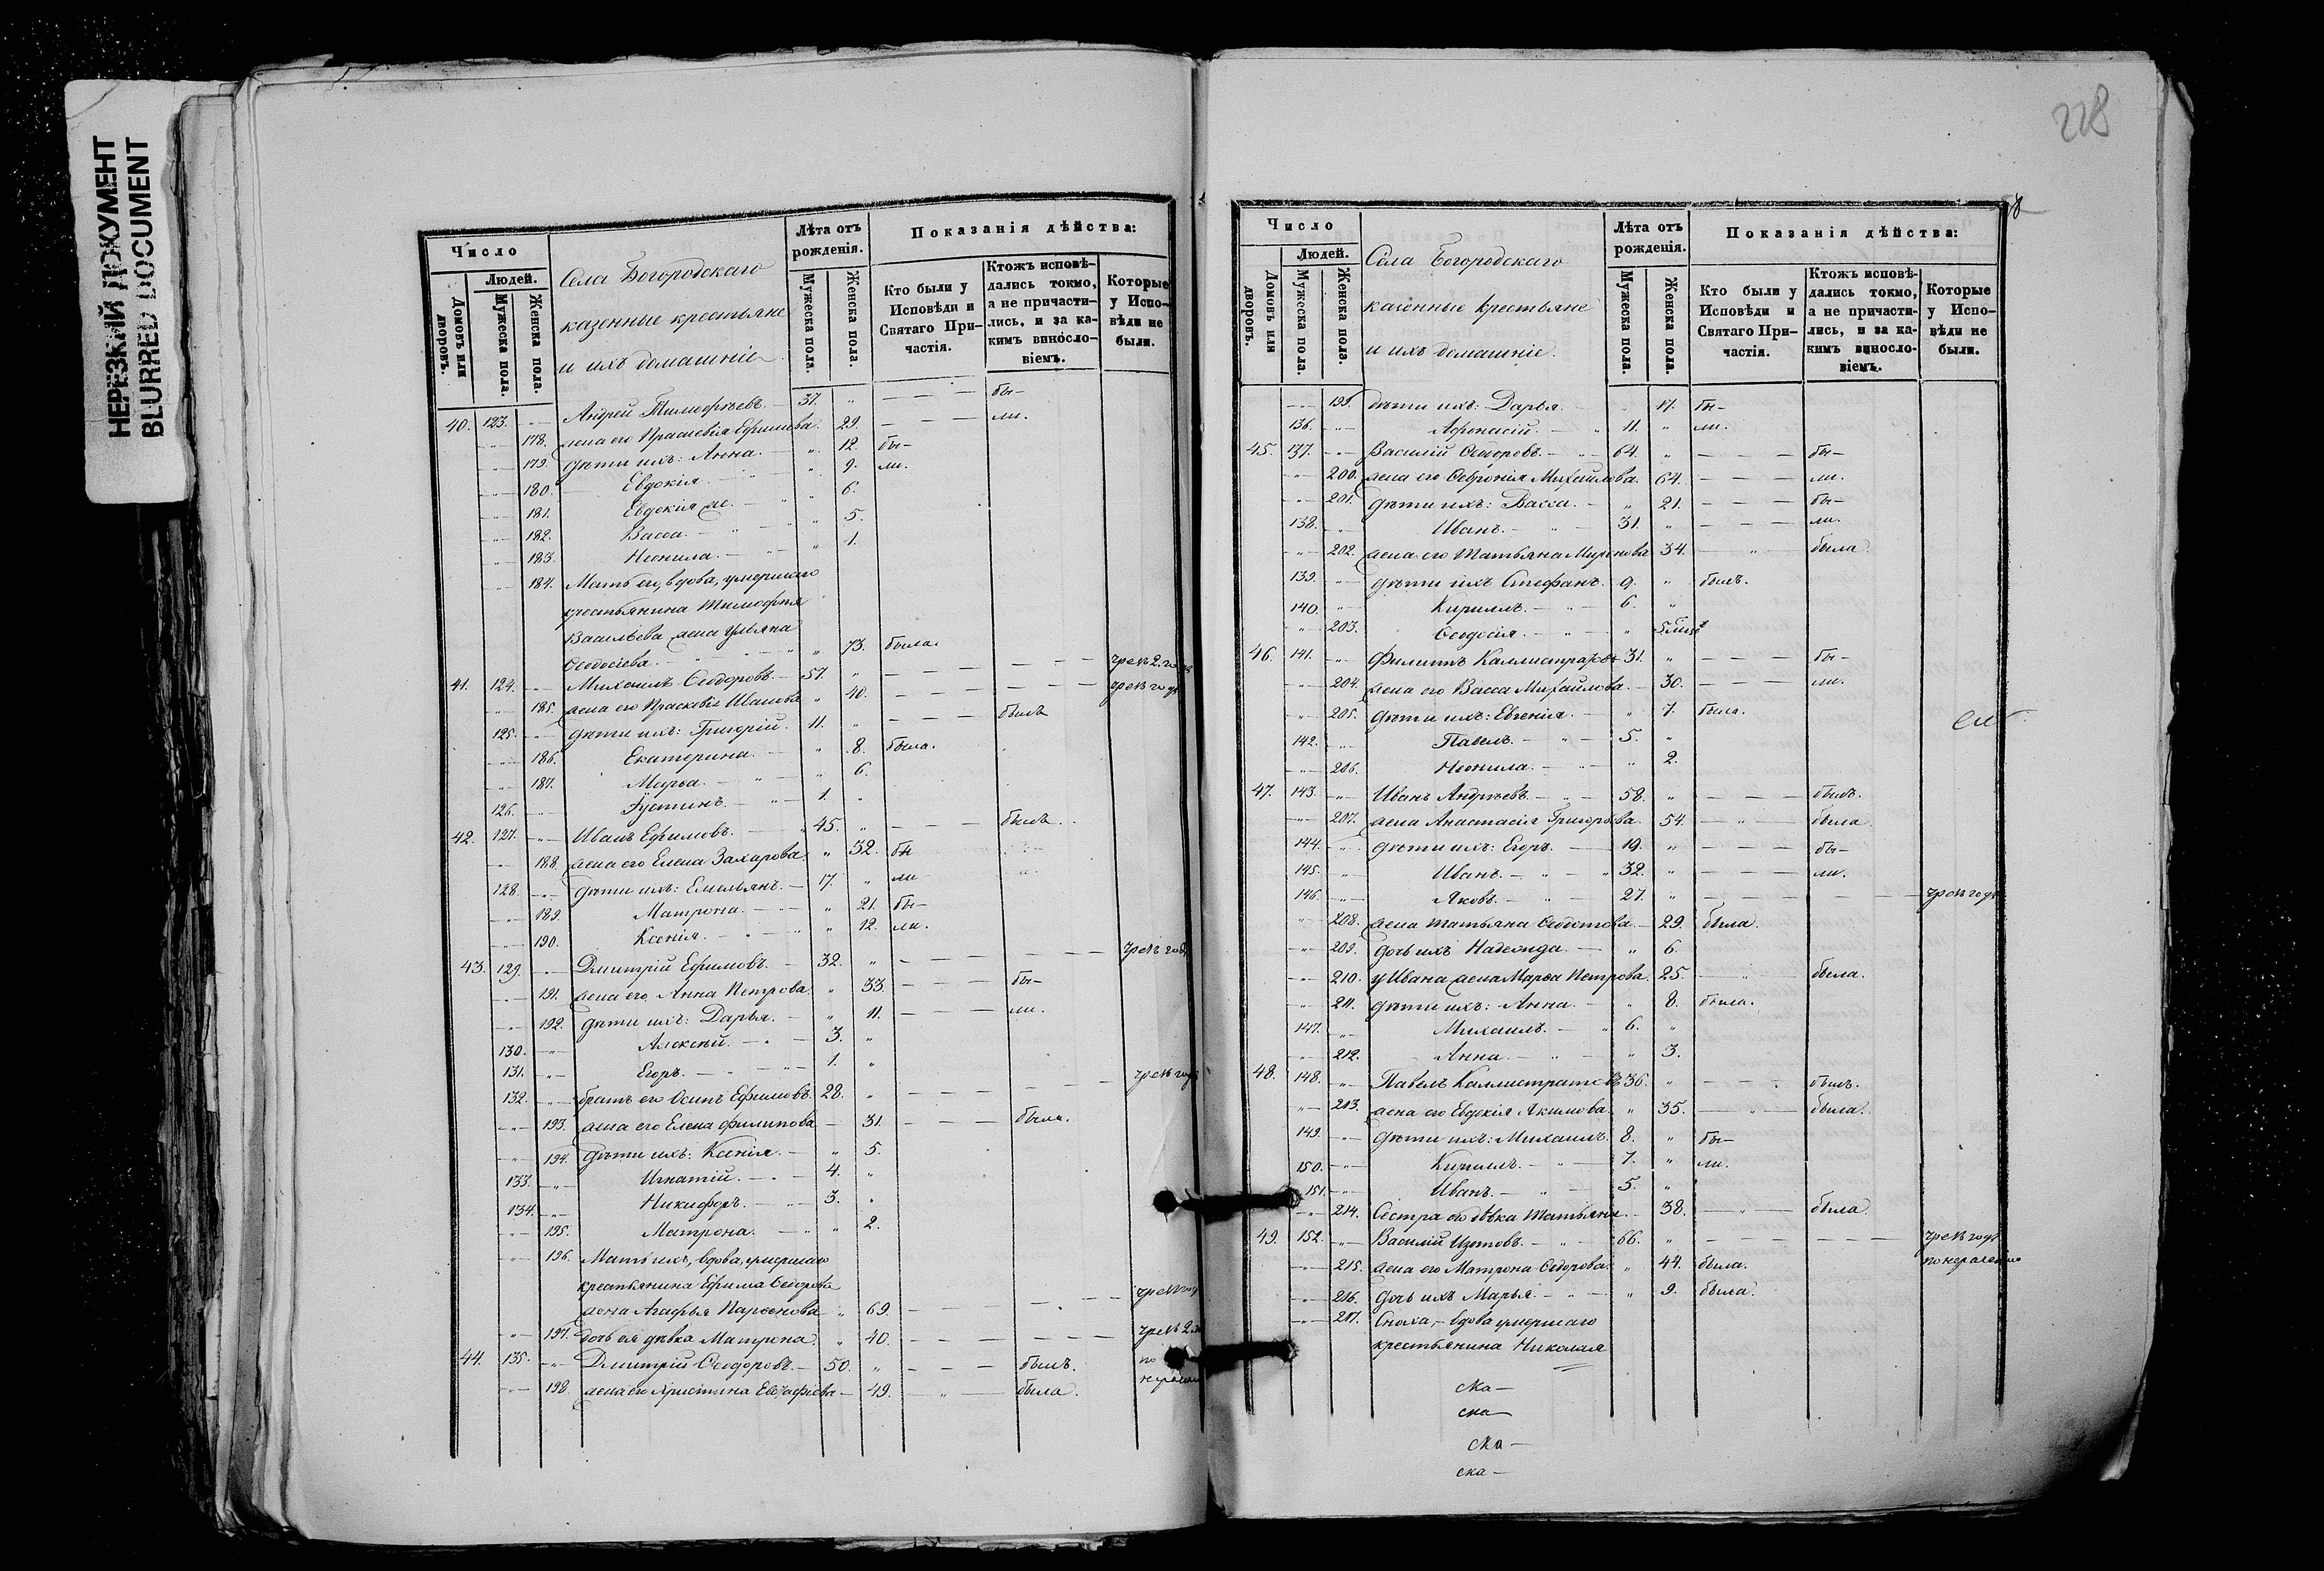 НЕРЕЗКИЙ ДОКУМЕНТ
BLURRED DOCUMENT
Число
Людей.
Домовъ или дворовъ.
Мужеска пола.
Женска пола.
Села Богородскаго
казенные крестьяне
и ихъ домашніе
Лѣта отъ рожденія.
Мужеска пола.
Женска пола.
Показанія дѣйства:
Кто были у Исповѣди и Святаго Причастія.
Ктожъ исповѣдались токмо, а не причастились, и за какимъ винословіемъ.
Которые у Исповѣди не были.
40. 123. -„- Андрей Тимофѣевъ. — 37. „ — — — бы-
-„- 178. жена его Праскевія Ефимова. 29. — — — ли.
-„- 179. дѣти ихъ: Анна. — „ 12. бы-
-„- 180. Евдокія. — „ 9. ли.
-„- 181. Евдокія же. — „ 6.
-„- 182. Васса. — „ 5.
-„- 183. Неонила. — „ 1.
-„- 184. Мать его, вдова, умершаго
крестьянина Тимофѣя
Васильева жена Ульяна
Ѳеодосіева. „ 73. была.
41. 124. -„- Михаилъ Ѳеодоровъ. — 57. „ — — — чрезъ 2 года
-„- 185. жена его Праскевія Иванова „ 40. — — — чрезъ годъ
125. -„- дѣти ихъ: Григорій. 11. „ — — — былъ
-„- 186. Екатерина. — „ 8. была.
-„- 187. Марѳа. — „ 6.
126. -„- Іустинъ. — 1. „
42. 127. -„- Иванъ Ефимовъ. — 45. „ — — — былъ.
-„- 188. жена его Елена Захарова. „ 52. бы
128. -„- дѣти ихъ: Емельянъ. — 17. „ ли
-„- 189. Матрона. — „ 21. бы-
-„- 190. Ксенія. — „ 12. ли.
43. 129. -„- Дмитрій Ефимовъ. — 32. „ — — — чрезъ годъ
-„- 191. жена его Анна Петрова. „ 33. — — — бы-
-„- 192. дѣти ихъ: Дарья. — „ 11. — — — ли.
130. -„- Алексѣй. — 3. „
131. -„- Егоръ. — 1. „
132. -„- братъ его Осипъ Ефимовъ. 28. „ — — — чрезъ годъ
-„- 193. жена его Елена Филипова — 31. — — — была.
-„- 194. дѣти ихъ: Ксенія. — „ 5.
133. -„- Игнатій. — 4. „
134. -„- Никифоръ. — 3. „
-„- 195. Матрона. — „ 2.
-„- 196. Мать ихъ, вдова, умершаго
крестьянина Ефима Ѳедорова
жена Агафья Парѳенова „ 69. — — — чрезъ годъ
-„- 197. дочь ея дѣвка Матрона. „ 40. — — — чрезъ 2
44. 135. -„- Дмитрій Ѳеодоровъ. — 50. „ — — — былъ. по
-„- 198. жена его Христина Евграфіева — 49. — „ — была.
228
Число
Людей.
Домовъ или дворовъ.
Мужеска пола.
Женска пола.
Села Богородскаго
казенные крестьяне
и ихъ домашніе.
Лѣта отъ рожденія.
Мужеска пола.
Женска пола.
Показанія дѣйства:
Кто были у Исповѣди и Святаго Причастія.
Ктожъ исповѣдались токмо, а не причастились, и за какимъ винословіемъ.
Которые у Исповѣди не были.
-„- 199. дѣти ихъ: Дарья. 17. бы-
136. -„- Аѳонасій. — 11. „ ли.
45. 137. -„- Василій Ѳеодоровъ. — 64. „ — — — бы-
-„- 200. жена его Ѳевронія Михайлова. 64. — — — ли.
-„- 201. дѣти ихъ: Васса. — „ 21. — — — бы-
138. -„- Иванъ. — 31. „ — — — ли.
-„- 202. жена его Татьяна Миронова 34. — „ была.
139. -„- дѣти ихъ Стефанъ. 9. „ былъ.
140. -„- Кириллъ. — 6. „
-„- 203. Ѳеодосія. — „ 5 міц.
46. 141. -„- Филиппъ Каллистратовъ 31. „ — — — бы-
-„- 204. жена его Васса Михайлова. — 30. — — — ли.
-„- 205. дѣти ихъ: Евгенія. — „ 7. была.
142. -„- Павелъ. — 5. „
-„- 206. Неонила. — „ 2.
47. 143. -„- Иванъ Андреевъ. — 58. „ — — — былъ.
-„- 207. жена Анастасія Григорьева. 54. — „ — была.
144. -„- дѣти ихъ: Егоръ. — 19. „ — — — бы-
145. -„- Иванъ. — „ 32. „ — — — ли.
146. -„- Яковъ. — 27. „ — — — чрезъ годъ
-„- 208. жена Татьяна Ѳедотова. — 29. была.
-„- 209. дочь ихъ Надежда. — „ 6.
-„- 210. у Ивана жена Марѳа Петрова. 25. — „ была.
-„- 211. дѣти ихъ: Анна. — „ 8. была.
147. -„- Михаилъ. — 6. „
-„- 212. Анна. — „ 3.
48. 148. -„- Павелъ Каллистратовъ 36. „ — — — былъ.
-„- 213. жена его Евдокія Акимова. „ 35. — „ — была.
149. -„- дѣти ихъ: Михаилъ. 8. „ бы-
150. -„- Кириллъ. — 7. „ ли.
151. -„- Иванъ. — 5. „
-„- 214. Сестра его дѣвка Татьяна. — 38. — „ — была.
49. 152. -„- Василій Изотовъ. — 66. „ — — — чрезъ годъ
-„- 215. жена его Матрона Ѳедорова. „ 44. была. по нераденію
-„- 216. дочь ихъ Марья. — „ 9. была.
-„- 217. Сноха, — вдова умершаго
крестьянина Николая
ска —
ска
ска —
ска —